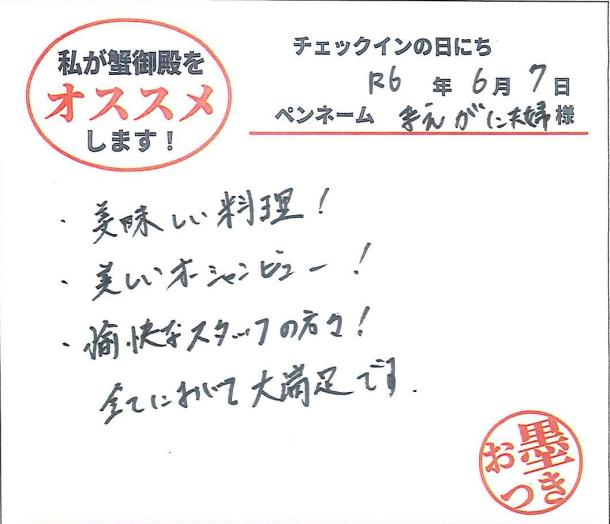 私が蟹御殿を
オススメ
します！
チェックインの日にち
R6 年 6月 7日
ペンネーム がに夫婦様
・美味しい料理！
・美しいオーシャンビュー！
・愉快なスタッフの方々！
全てにおいて大満足です.
お墨
つき